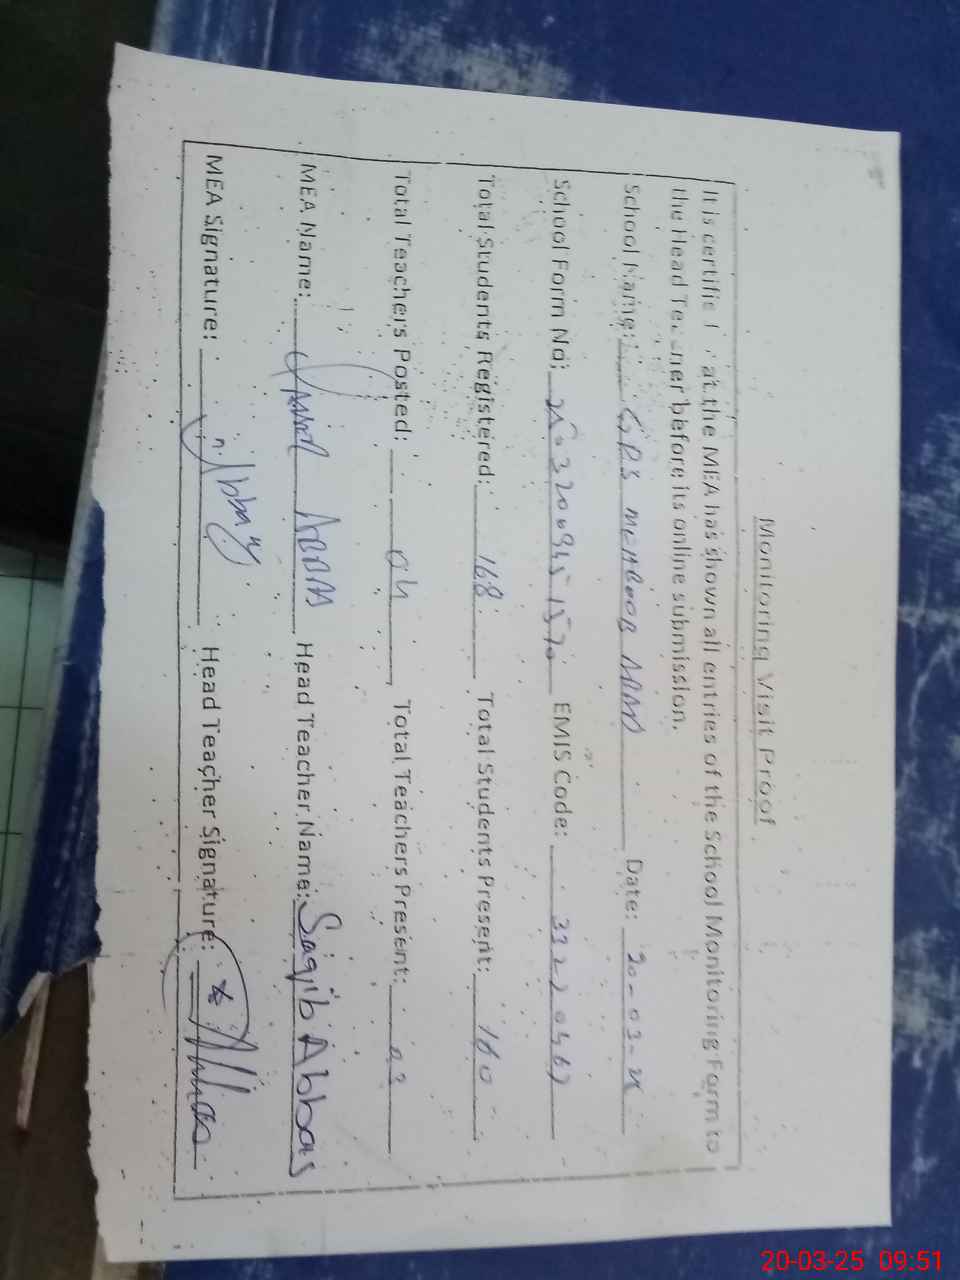 Monitoring Visit Proof
It is certified that the MEA has shown all entries of the School Monitoring Form to
the Head Teacher before its online submission.
School Name: GPS MEHBOOB Date: 20-03-25
School Form No: EMIS Code:
Total Students Registered: 168 Total Students Present: 160
Total Teachers Posted: 04 Total Teachers Present: 03
MEA Name: ABBAS Head Teacher Name: Saqib Abbas
MEA Signature: Head Teacher Signature:
20-03-25 09:51